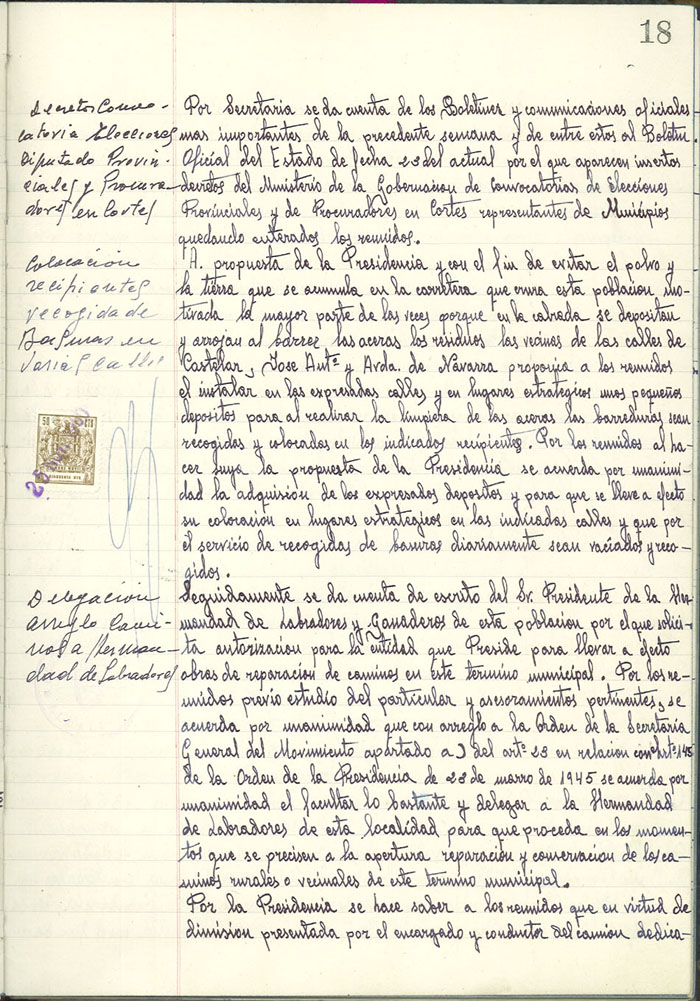 18
Decretos Convo-
catoria Elecciones
Diputado Provin-
ciales y Procura-
dores en Cortes
Por Secretaria se da cuenta de los Boletines y comunicaciones oficiales
mas importantes de la precedente semana y de entre estos al Boletin
Oficial del Estado de fecha 23 del actual por el que aparecen insertos
decretos del Ministerio de la Gobernacion de Convocatorias de Elecciones
Provinciales y de Procuradores en Cortes representantes de Municipios
quedando enterados los reunidos.
Colocacion
recipientes
recogida de
Basuras en
varias calles
A. propuesta de la Presidencia y con el fin de evitar el polvo y
la tierra que se acumula en la carretera que cruza esta poblacion mo-
tivada la mayor parte de las veces porque en la calzada se depositan
y arrojan al barrer las aceras los residuos los vecinos de las calles de
Castelar, Jose Antº y Avda. de Navarra proponia a los reunidos
el instalar en las expresadas calles y en lugares estrategicos unos pequeños
depositos para al realizar la limpieza de las aceras las barreduras sean
recogidas y colocadas en los indicados recipientes. Por los reunidos al ha-
cer suya la propuesta de la Presidencia se acuerda por unanimi-
dad la adquision de los expresados depositos y para que se lleve a efecto
su colocacion en lugares estrategicos en las indicadas calles y que por
el servicio de recogidas de basuras diariamente sean vaciados y reco-
gidos.
50 CTS
Delegacion
arreglo Cami-
nos a Herman-
dad de Labradores
Seguidamente se da cuenta de escrito del Sr. Presidente de la Her-
mandad de Labradores y Ganaderos de esta poblacion por el que solici-
ta autorizacion para la entidad que Preside para llevar a efecto
obras de reparacion de caminos en este termino municipal. Por los re-
unidos previo estudio del particular y asesoramientos pertinentes, se
acuerda por unanimidad que con arreglo a la Orden de la Secretaria
General del Movimiento apartado a) del artº 23 en relacion con el Artº 145
de la Orden de la Presidencia de 23 de marzo de 1945 se acuerda por
unanimidad el facultar lo bastante y delegar a la Hermandad
de Labradores de esta localidad para que proceda en los momen-
tos que se precisen a la apertura reparacion y conservacion de los ca-
minos rurales o vecinales de este termino municipal.
Por la Presidencia se hace saber a los reunidos que en virtud de
dimision presentada por el encargado y conductor del camion dedica-